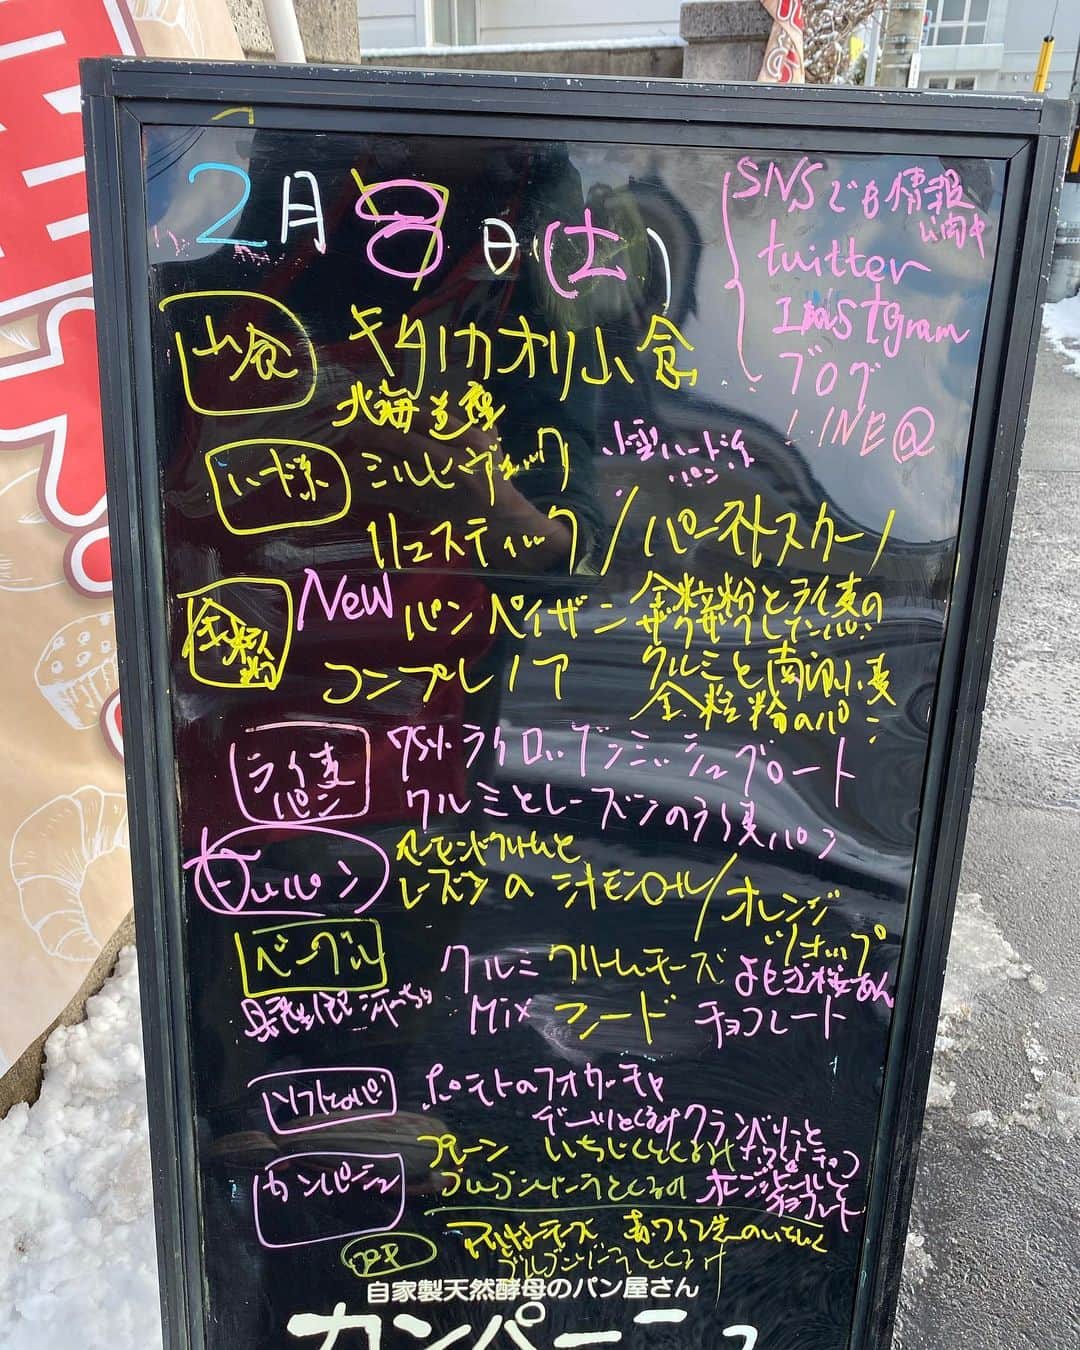 2月8日(土)
SNSでも情報
公開中
twitter
Instagram
ブログ
LINE@
山食
キタノカオリ山食
北海道産
ハード系
ミルヒヴェック 小型ハード系
パン
リュスティック/パーネトスカーノ
全粒粉
New パンペイザン 全粒粉とライ麦の
ザクザクしたパン
コンプレノア クルミと南部小麦
全粒粉のパン
ライ麦
パン
75%ライロッゲンミッシュブロート
クルミとレーズンのライ麦パン
甘いパン
レーズンの シナモンロール/オレンジ
ベーグル
クルミ クリームチーズ よもぎ桜あん
Mix フード チョコレート
ソフトなパン
ポテトのフォカッチャ
デーツとくるみ クランベリーと
カンパーニュ
プレーン いちじくとくるみ
オレンジピールと
チョコレート
自家製天然酵母のパン屋さん
カンパーニュ